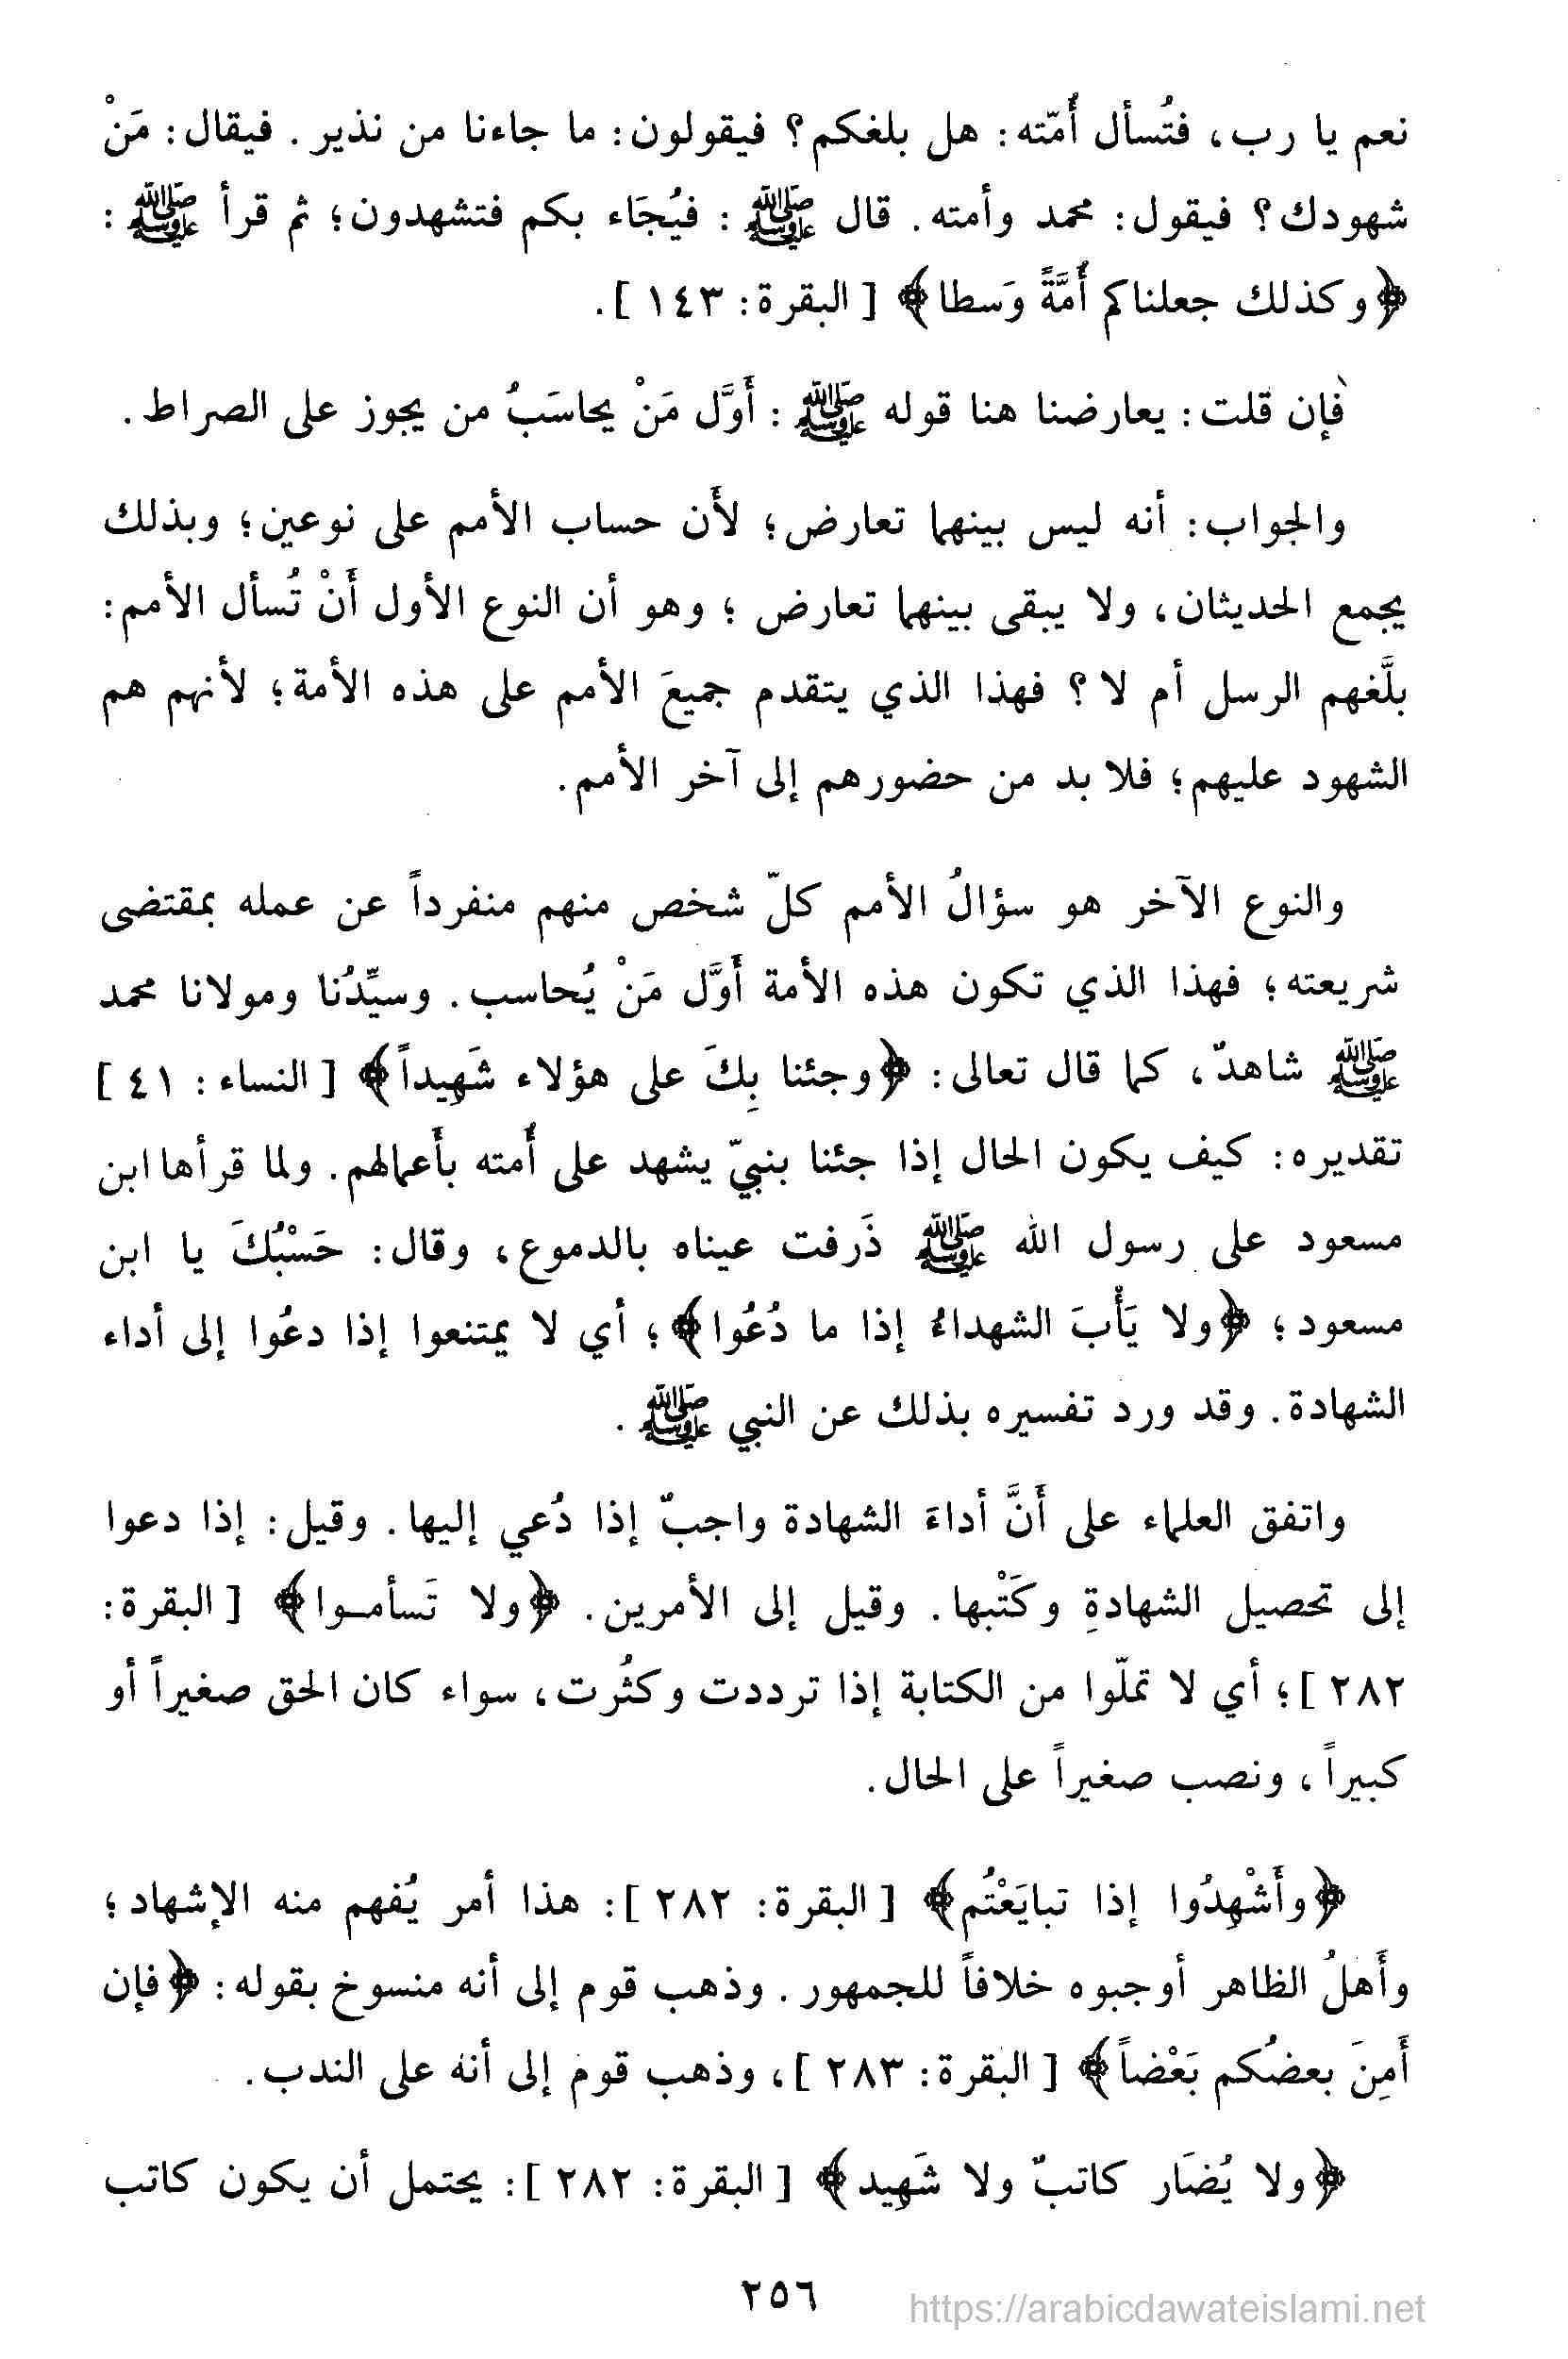 نعم يا رب، فتُسأل أُمّته: هل بلغكم؟ فيقولون: ما جاءنا من نذير. فيقال: مَنْ
شهودك؟ فيقول: محمد وأمته. قال ﷺ: فيُجَاء بكم فتشهدون؛ ثم قرأ ﷺ:
﴿وكذلك جعلناكم أُمَّةً وَسطا﴾ [البقرة: ١٤٣].
فإن قلت: يعارضنا هنا قوله ﷺ: أَوَّل مَنْ يحاسَبُ من يجوز على الصراط.
والجواب: أنه ليس بينهما تعارض؛ لأَن حساب الأمم على نوعين؛ وبذلك
يجمع الحديثان، ولا يبقى بينهما تعارض؛ وهو أن النوع الأول أَنْ تُسأل الأمم:
بلَّغهم الرسل أم لا؟ فهذا الذي يتقدم جميعَ الأمم على هذه الأمة؛ لأنهم هم
الشهود عليهم؛ فلا بد من حضورهم إلى آخر الأمم.
والنوع الآخر هو سؤالُ الأمم كلّ شخص منهم منفرداً عن عمله بمقتضى
شريعته؛ فهذا الذي تكون هذه الأمة أَوَّل مَنْ يُحاسب. وسيِّدُنا ومولانا محمد
ﷺ شاهدٌ، كما قال تعالى: ﴿وجئنا بِكَ على هؤلاء شَهِيداً﴾ [النساء: ٤١]
تقديره: كيف يكون الحال إذا جئنا بنبيّ يشهد على أُمته بأَعمالهم. ولما قرأها ابن
مسعود على رسول الله ﷺ ذَرفت عيناه بالدموع، وقال: حَسْبُكَ يا ابن
مسعود؛ ﴿ولا يَأْبَ الشهداءُ إذا ما دُعُوا﴾؛ أي لا يمتنعوا إذا دعُوا إلى أداء
الشهادة. وقد ورد تفسيره بذلك عن النبي ﷺ.
واتفق العلماء على أَنَّ أداءَ الشهادة واجبٌ إذا دُعي إليها. وقيل: إذا دعوا
إلى تحصيل الشهادةِ وكَتْبها. وقيل إلى الأمرين. ﴿ولا تَسأمـوا﴾ [البقرة:
٢٨٢]؛ أي لا تملّوا من الكتابة إذا ترددت وكثُرت، سواء كان الحق صغيراً أو
كبيراً، ونصب صغيراً على الحال.
﴿وأَشْهِدُوا إذا تبايَعْتُم﴾ [البقرة: ٢٨٢]: هذا أمر يُفهم منه الإشهاد؛
وأَهلُ الظاهر أوجبوه خلافاً للجمهور. وذهب قوم إلى أنه منسوخ بقوله: ﴿فإن
أَمِنَ بعضُكم بَعْضاً﴾ [البقرة: ٢٨٣]، وذهب قوم إلى أنه على الندب.
﴿ولا يُضَار كاتبٌ ولا شَهِيد﴾ [البقرة: ٢٨٢]: يحتمل أن يكون كاتب
٢٥٦
https://arabicdawateislami.net